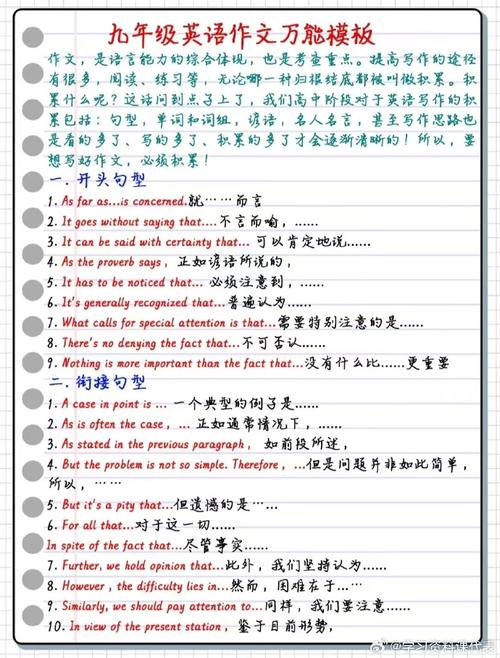 九年级英语作文万能模板
作文，是语言能力的综合体现，也是考查重点。提高写作的途径
有很多，阅读、练习等，无论哪一种归根结底都被叫做积累。积
累什么呢？这话问到点子上了，我们高中阶段对于英语写作的积
累包括：句型，单词和词组，谚语，名人名言，甚至写作思路也
是看的多了、写的多了、积累的多了才会逐渐清晰的！所以，要
想写好作文，必须积累！
一．开头句型
1. As far as...is concerned.就……而言
2. It goes without saying that....不言而喻，......
3. It can be said with certainty that... 可以肯定地说......
4. As the proverb says，正如谚语所说的，
5. It has to be noticed that... 必须注意到，......
6. It's generally recognized that...普遍认为......
7. What calls for special attention is that...需要特别注意的是......
8. There's no denying the fact that...不可否认......
9. Nothing is more important than the fact that...没有什么比......更重要
二．衔接句型
1. A case in point is ... 一个典型的例子是......
2. As is often the case，...正如通常情况下，......
3. As stated in the previous paragraph，如前段所述，
4. But the problem is not so simple. Therefore，...但是问题并非如此简单，
所以，……
5. But it's a pity that...但遗憾的是…...
6. For all that...对于这一切......
In spite of the fact that...尽管事实......
7. Further, we hold opinion that...此外，我们坚持认为......
8. However，the difficulty lies in...然而，困难在于…...
9. Similarly, we should pay attention to...同样，我们要注意......
10. In view of the present station，鉴于目前形势，
@学习资料课代表